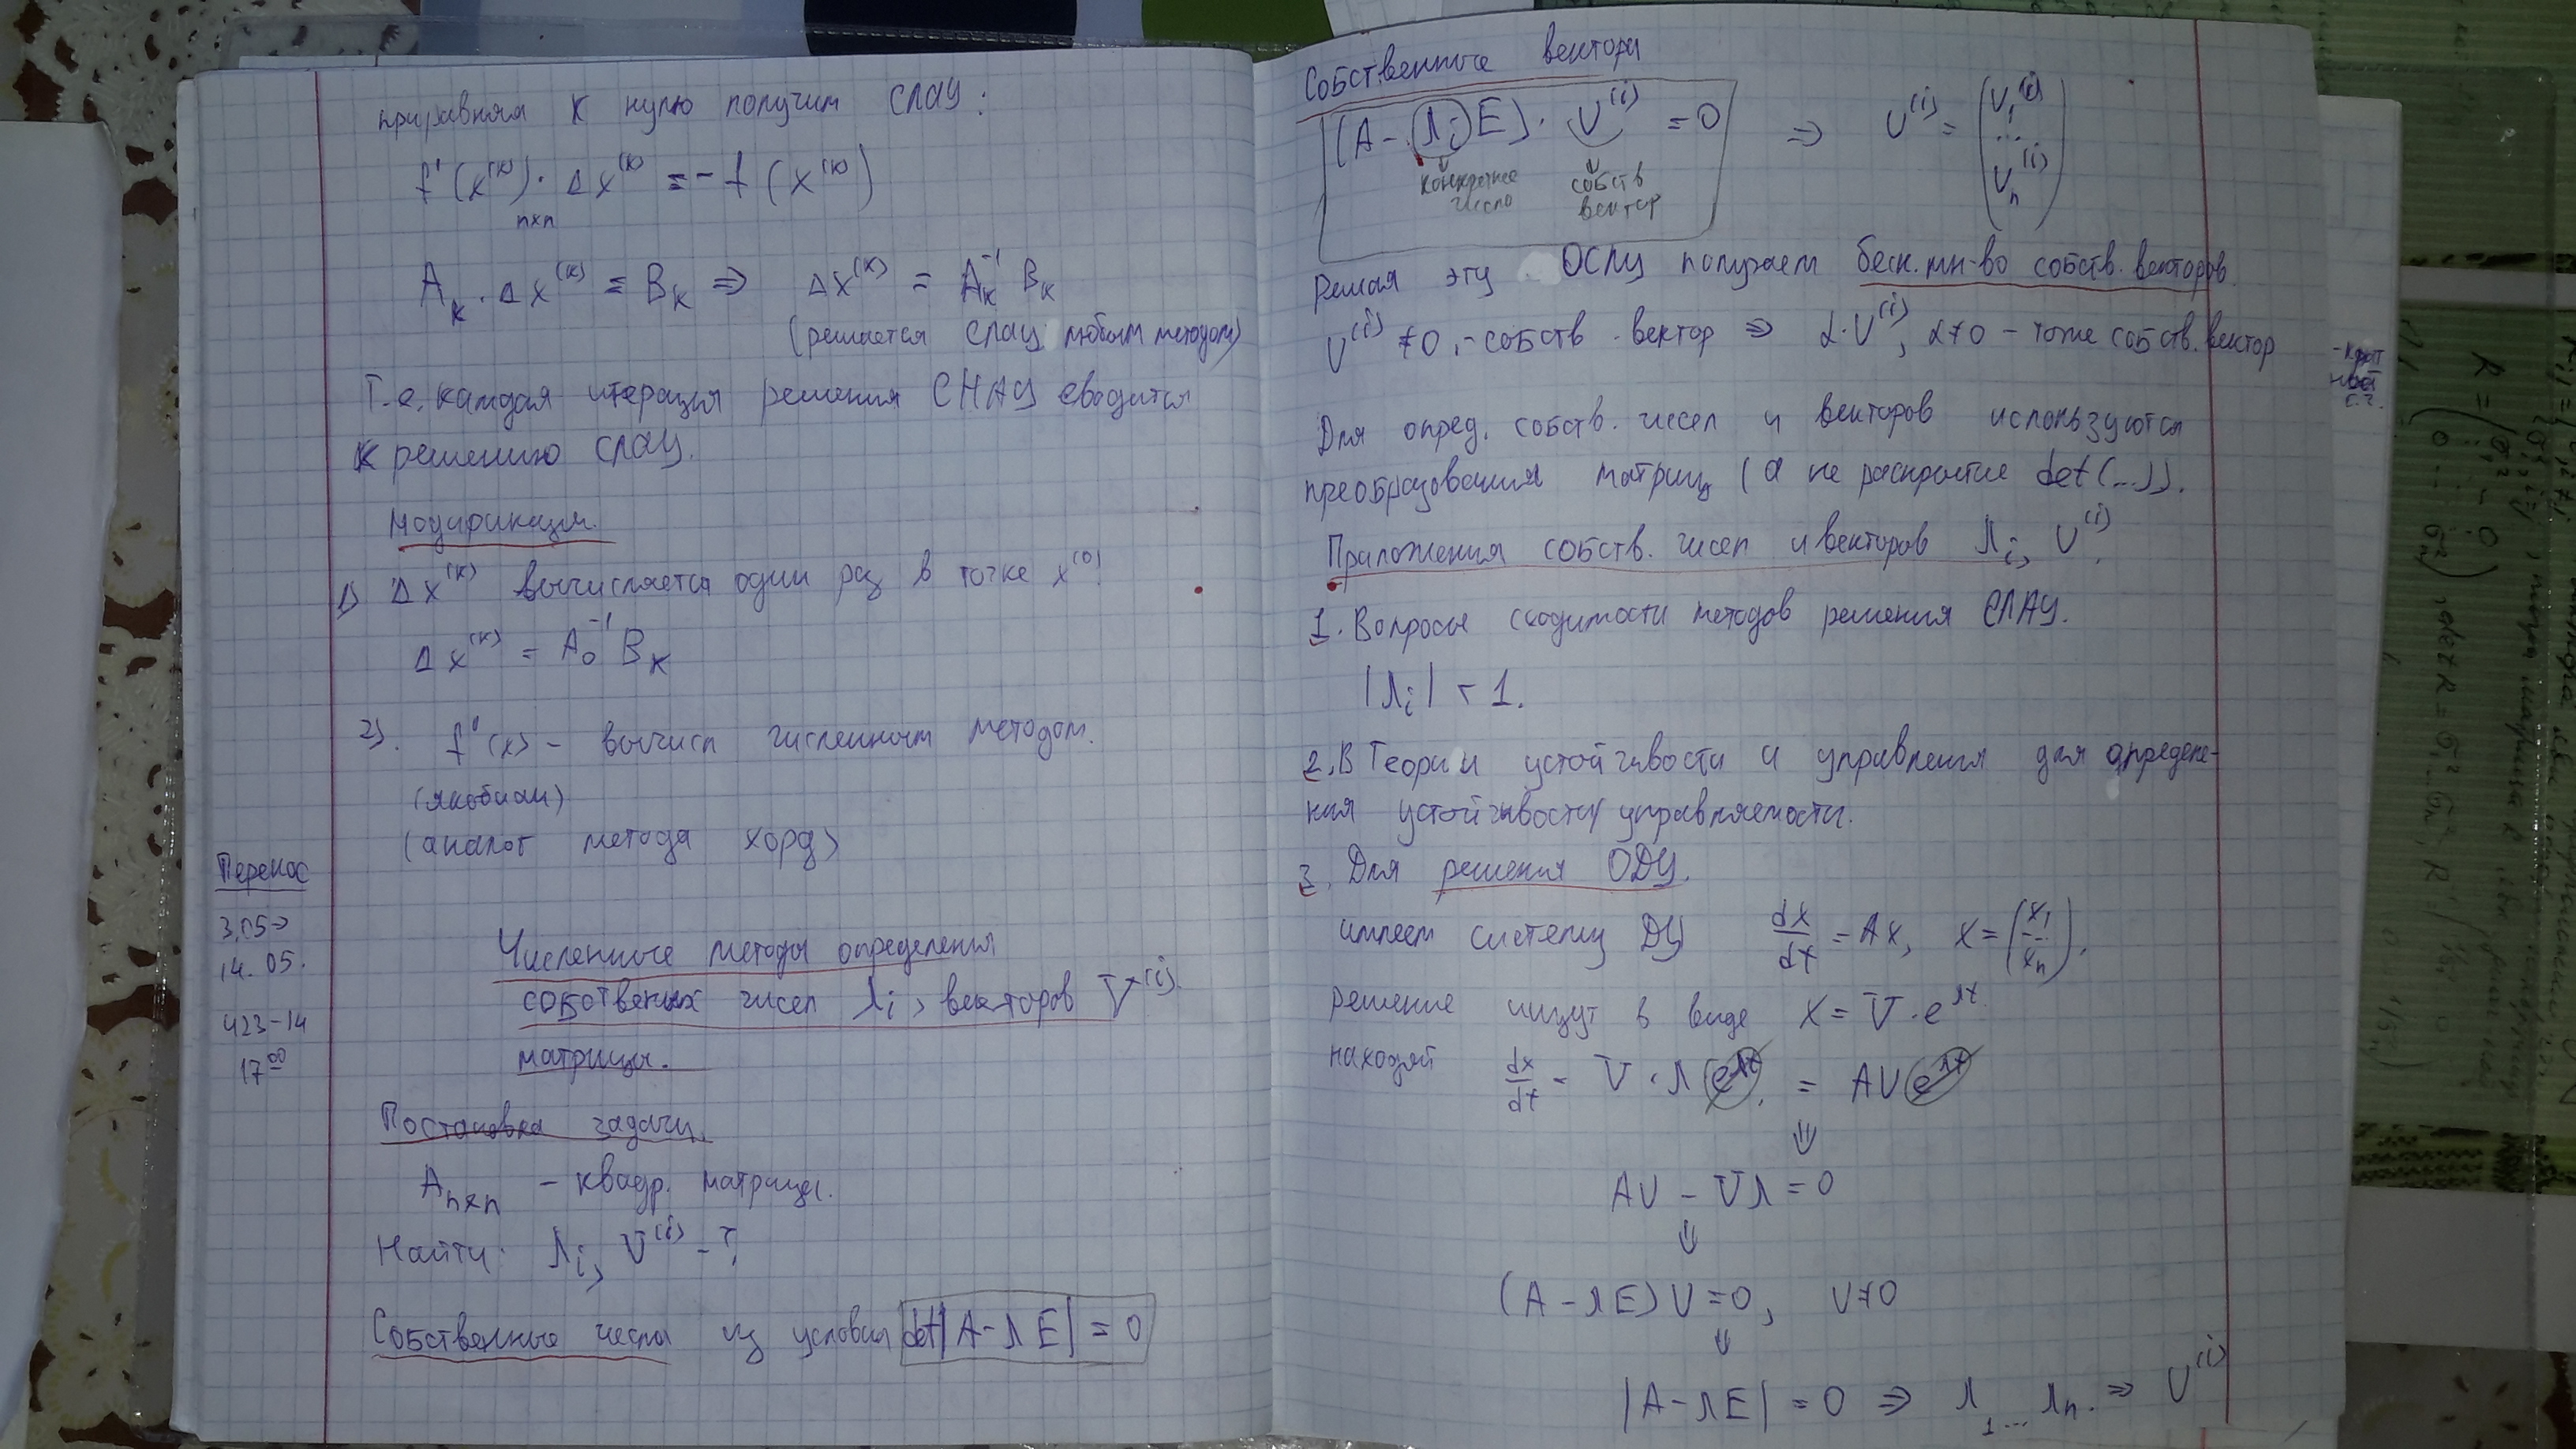 приравняв к нулю получим СЛАУ:
f'(x⁽ᵏ⁾)·Δx⁽ᵏ⁾ = -f(x⁽ᵏ⁾)
n×n
Aₖ·Δx⁽ᵏ⁾ = Bₖ ⇒ Δx⁽ᵏ⁾ = Aₖ⁻¹Bₖ
(решается СЛАУ любым методом)
Т.е. каждая итерация решения СНАУ сводится
к решению СЛАУ.
Модификации.
1) Δx⁽ᵏ⁾ вычисляется один раз в точке x⁽⁰⁾
Δx⁽ᵏ⁾ = A₀⁻¹Bₖ
2). f'(x) - вычисл численным методом.
(якобиан)
(аналог метода хорд)
Перенос
3.05⇒
14.05.
423-14
17⁰⁰
Численные методы определения
собственных чисел λᵢ, векторов V⁽ⁱ⁾
матрицы.
Постановка задачи
Aₙₓₙ - квадр. матрица.
Найти: λᵢ, V⁽ⁱ⁾ - ?
Собственные числа из условия det|A-λE| = 0
Собственные вектора
(A-λᵢE)·V⁽ⁱ⁾ = 0 ⇒ V⁽ⁱ⁾ = (V₁⁽ⁱ⁾ ... Vₙ⁽ⁱ⁾)
конкретное собств
число вектор
Решая эту ОСЛУ получаем беск. мн-во собств. векторов
V⁽ⁱ⁾ ≠ 0, - собств. вектор ⇒ α·V⁽ⁱ⁾, α≠0 - тоже собств. вектор
Для опред. собств. чисел и векторов используются
преобразования матриц (а не раскрытие det(...)).
Приложения собств. чисел и векторов λᵢ, V⁽ⁱ⁾
1. Вопросы сходимости методов решения СЛАУ.
|λᵢ| < 1.
2. В Теории устойчивости и управления для определе-
ния устойчивости/управляемости.
3. Для решения ОДУ.
имеем систему ДУ dx/dt = Ax, x = (x₁ ... xₙ).
решение ищут в виде x = V·e^λt.
находят dx/dt = V·λe^λt = AVe^λt
⇓
AV - Vλ = 0
⇓
(A-λE)V = 0, V≠0
⇓
|A-λE| = 0 ⇒ λ₁...λₙ. ⇒ V⁽ⁱ⁾